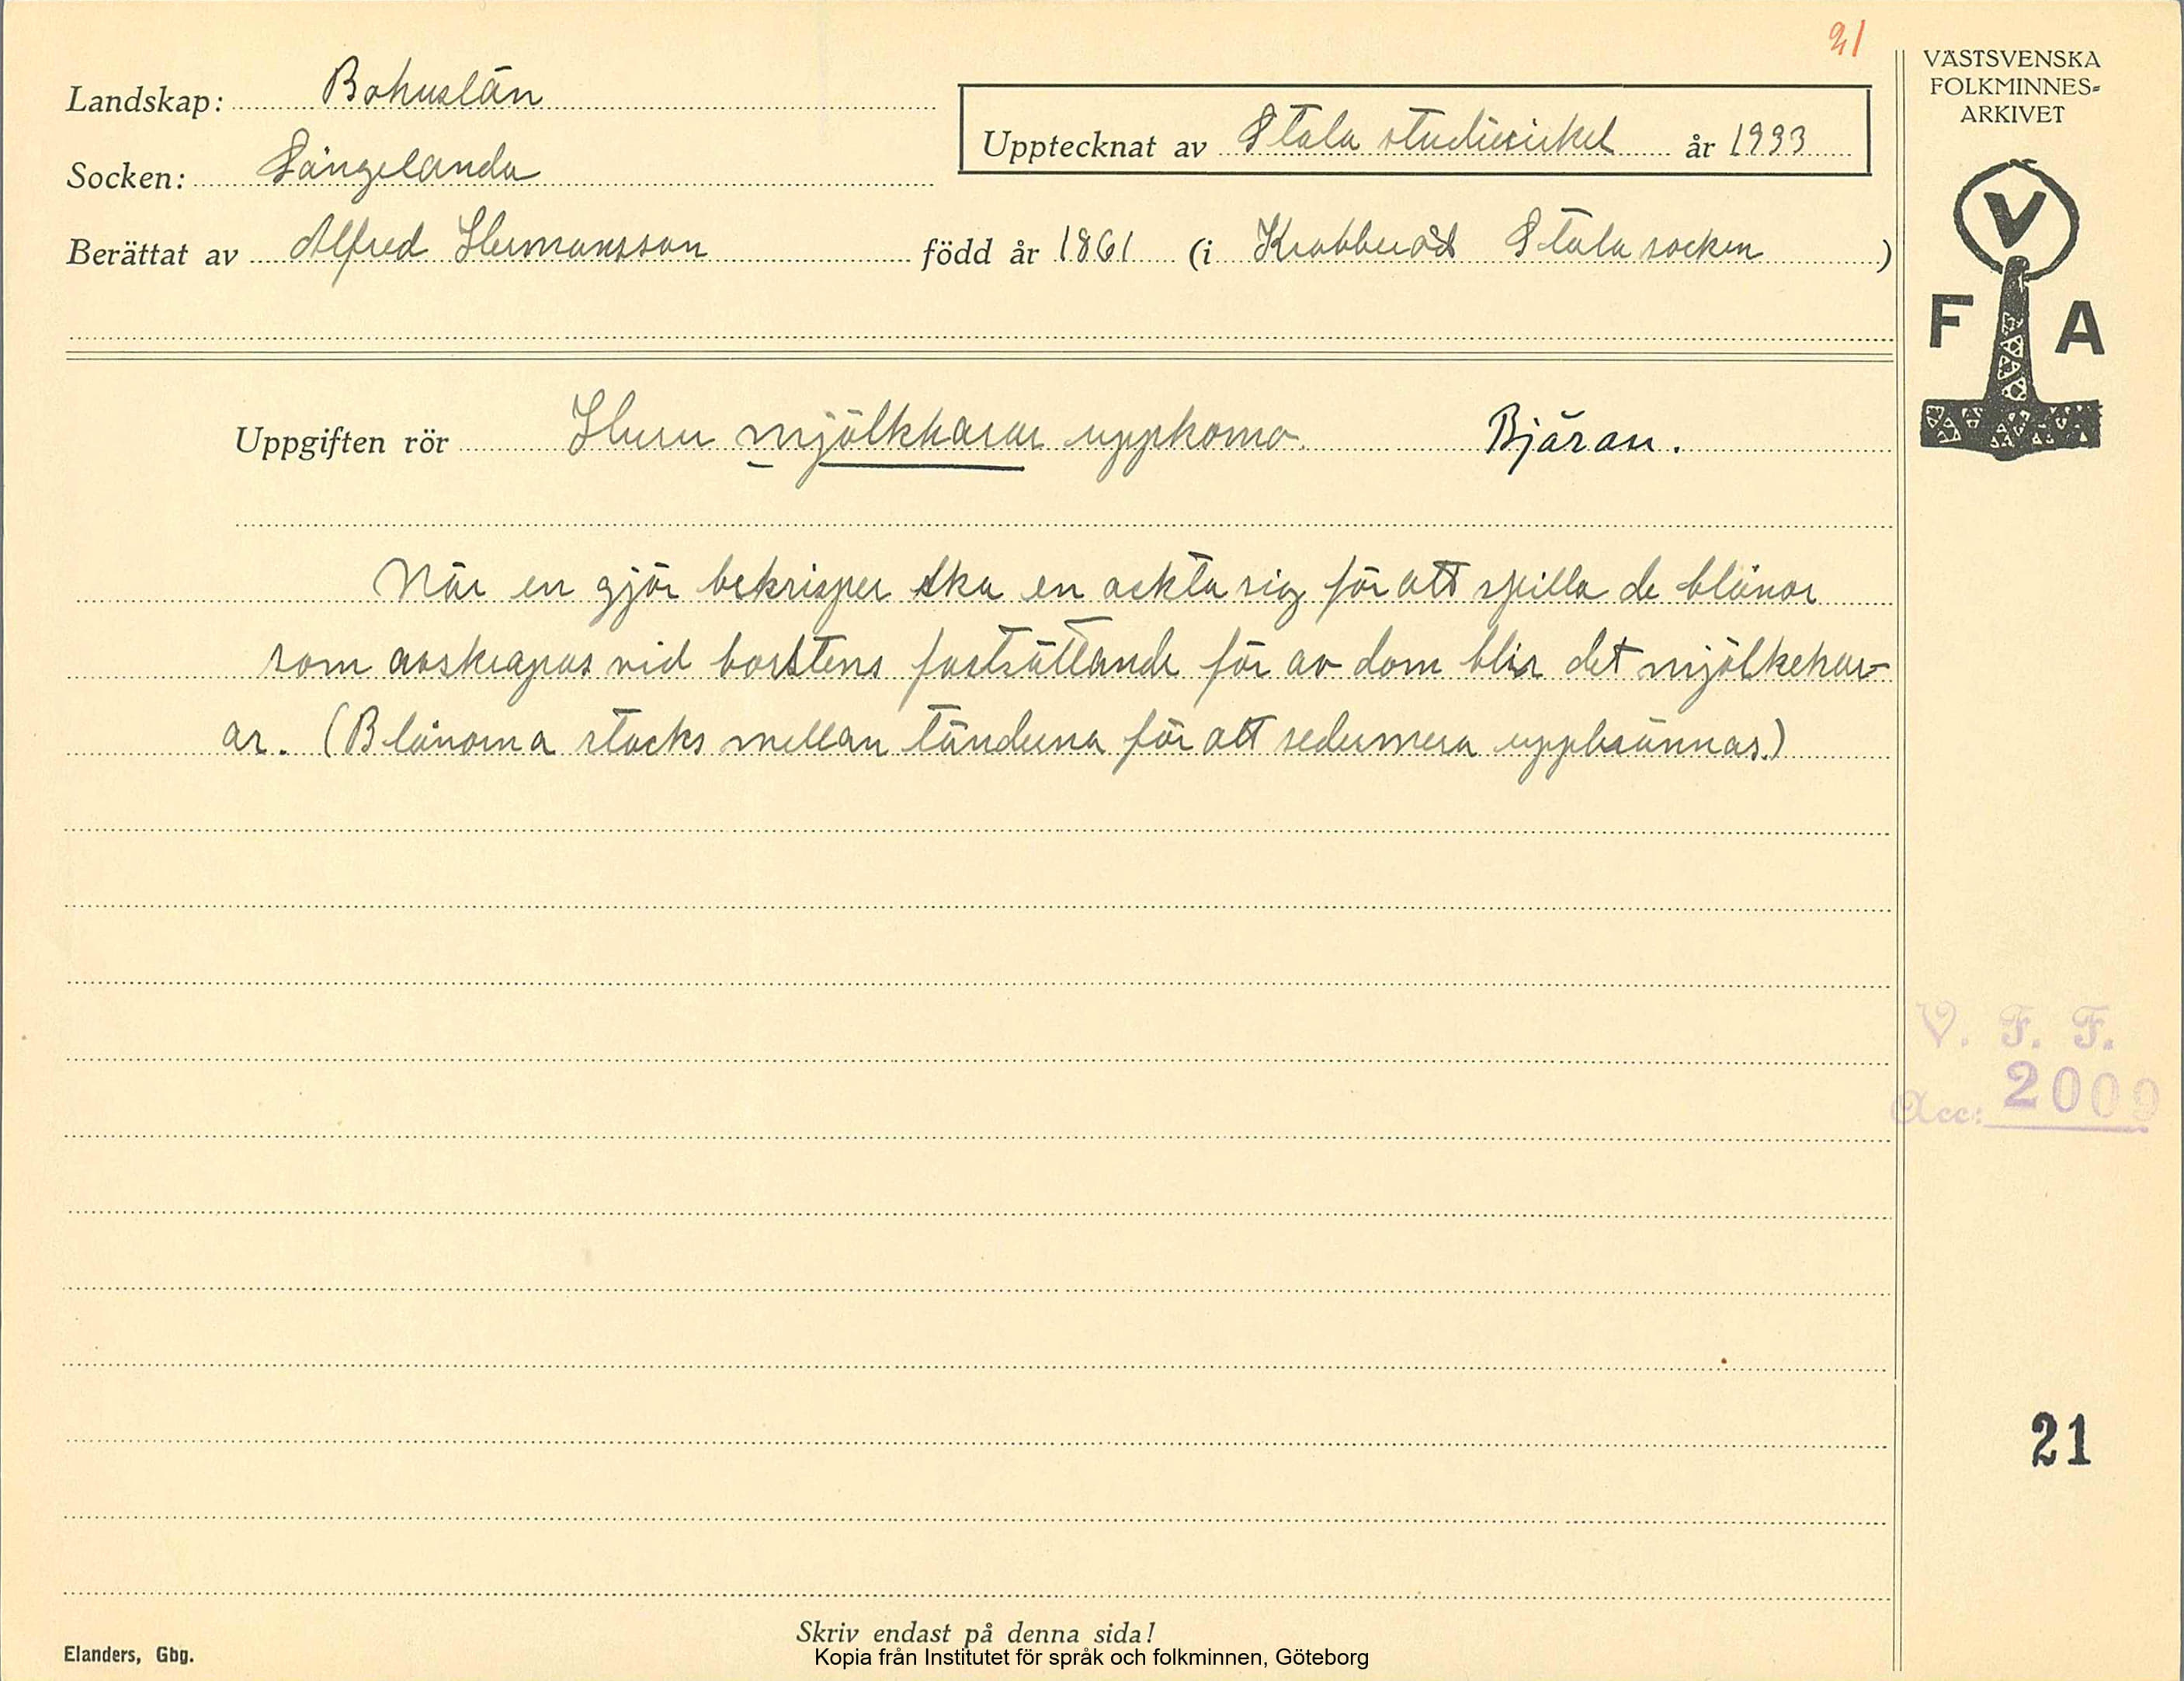 21
Landskap: Bohuslän
Socken: Långelanda
Berättat av Alfred Hermansson född år 1861 (i Krabberöd Stala socken)
Upptecknat av Stala studiecirkel år 1933
VÄSTSVENSKA
FOLKMINNES=
ARKIVET
V
F A
Uppgiften rör Huru mjölkharar uppkomo. Bjäran.
När en gjör bekrisper ska en ackta sig för att spilla de blånor
som avskrapas vid borstens fastsättande för av dom blir det mjölkehar-
ar. (Blånorna stocks mellan tänderna för att sedermera uppbrännas.)
V. F. F.
Acc: 2009
21
Skriv endast på denna sida!
Elanders, Gbg.
Kopia från Institutet för språk och folkminnen, Göteborg